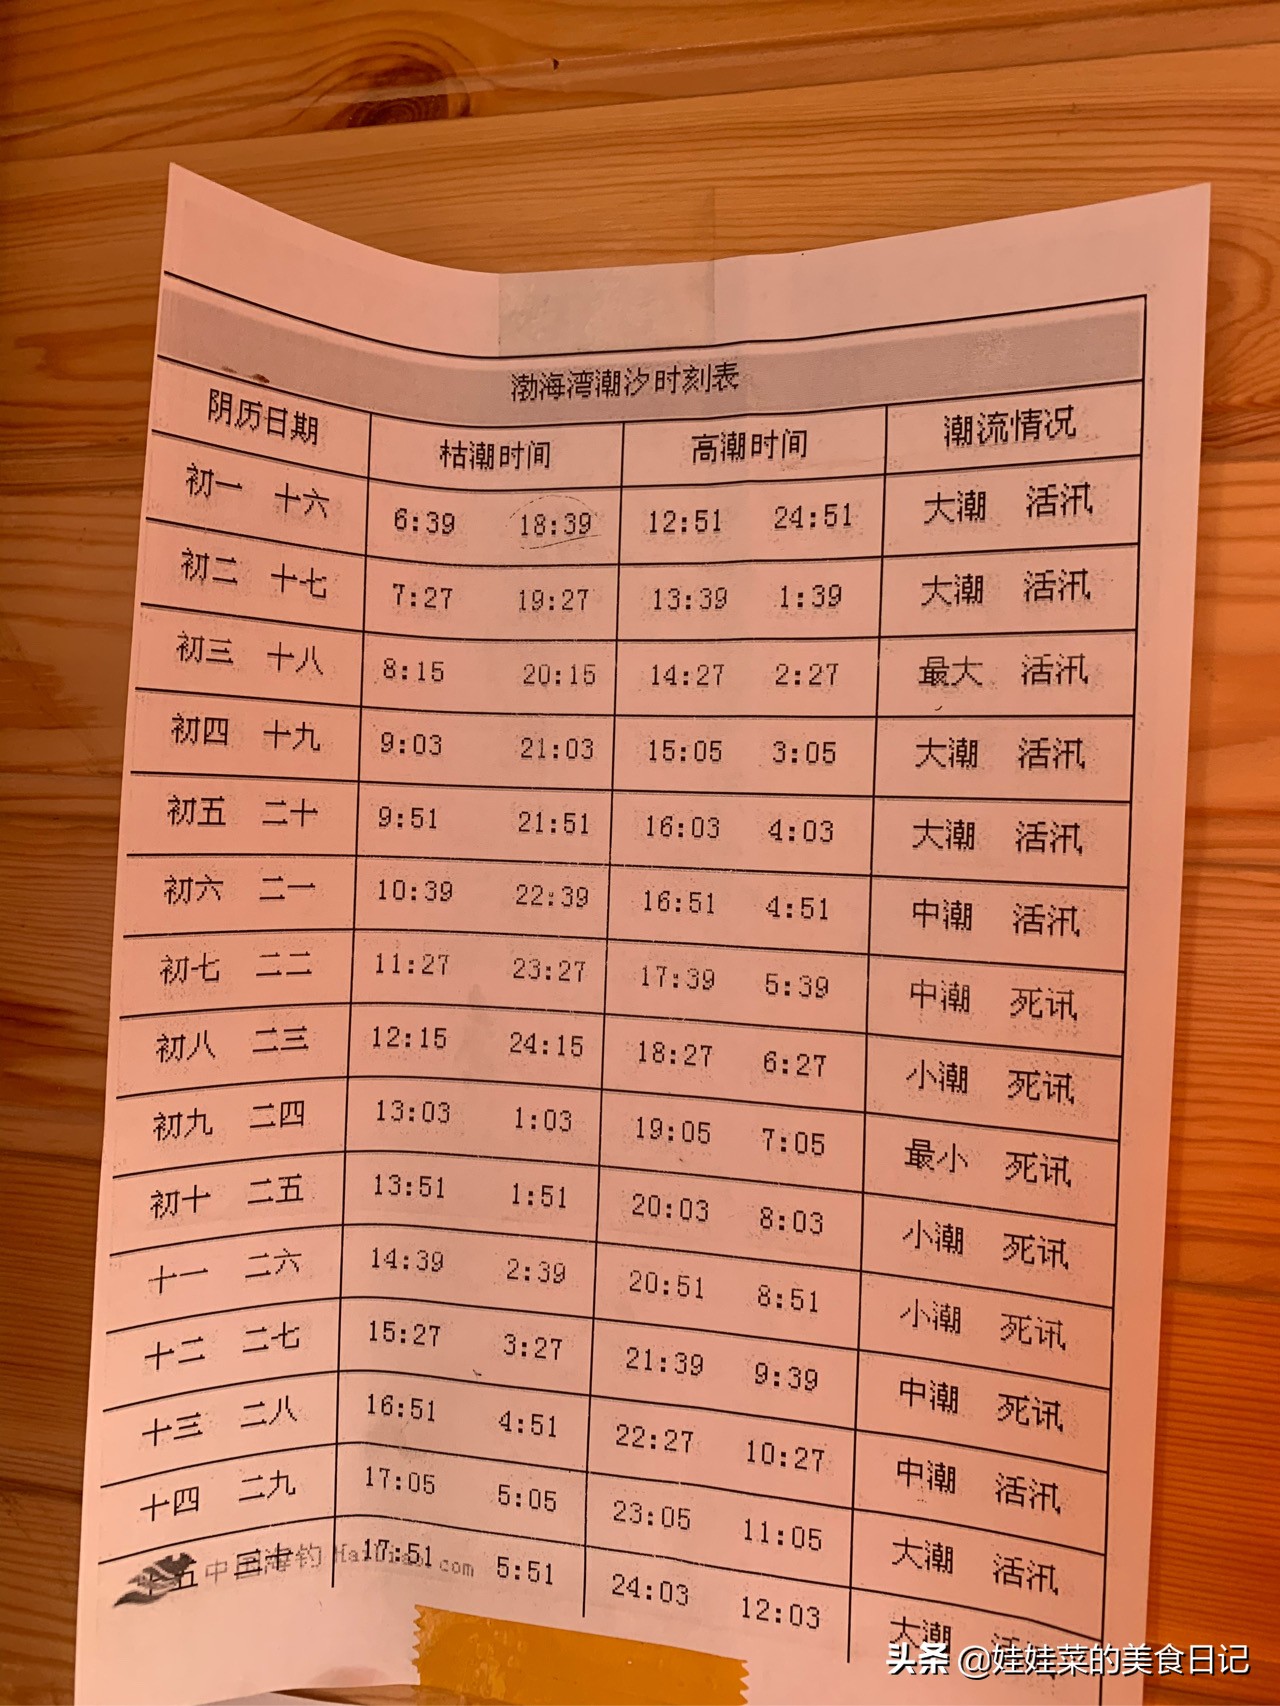 渤海湾潮汐时刻表
阴历日期 枯潮时间 高潮时间 潮流情况
初一 十六 6:39 18:39 12:51 24:51 大潮 活汛
初二 十七 7:27 19:27 13:39 1:39 大潮 活汛
初三 十八 8:15 20:15 14:27 2:27 最大 活汛
初四 十九 9:03 21:03 15:05 3:05 大潮 活汛
初五 二十 9:51 21:51 16:03 4:03 大潮 活汛
初六 二一 10:39 22:39 16:51 4:51 中潮 活汛
初七 二二 11:27 23:27 17:39 5:39 中潮 死讯
初八 二三 12:15 24:15 18:27 6:27 小潮 死讯
初九 二四 13:03 1:03 19:05 7:05 最小 死讯
初十 二五 13:51 1:51 20:03 8:03 小潮 死讯
十一 二六 14:39 2:39 20:51 8:51 小潮 死讯
十二 二七 15:27 3:27 21:39 9:39 中潮 死讯
十三 二八 16:51 4:51 22:27 10:27 中潮 活汛
十四 二九 17:05 5:05 23:05 11:05 大潮 活汛
十五 三十 17:51 5:51 24:03 12:03 大潮 活
中国海钓 .com
头条 @娃娃菜的美食日记